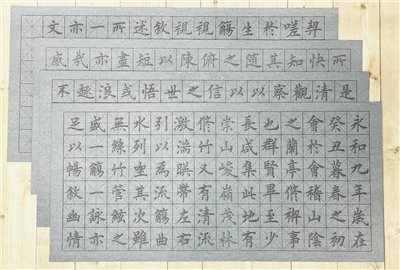 契嗟於生觴視視敘述所一亦文
所快知其隨之俯陳以短盡亦哉感
是清觀察以以信之世悟或浪趣不
永和九年歲在
癸丑暮春之初
會於會稽山陰
之蘭亭脩禊事
也群賢畢至少
長咸集此地有
崇山峻嶺茂林
脩竹又有清流
激湍暎帶左右
引以為流觴曲
水列坐其次雖
無絲竹管絃之
盛一觴一詠亦
足以暢敘幽情